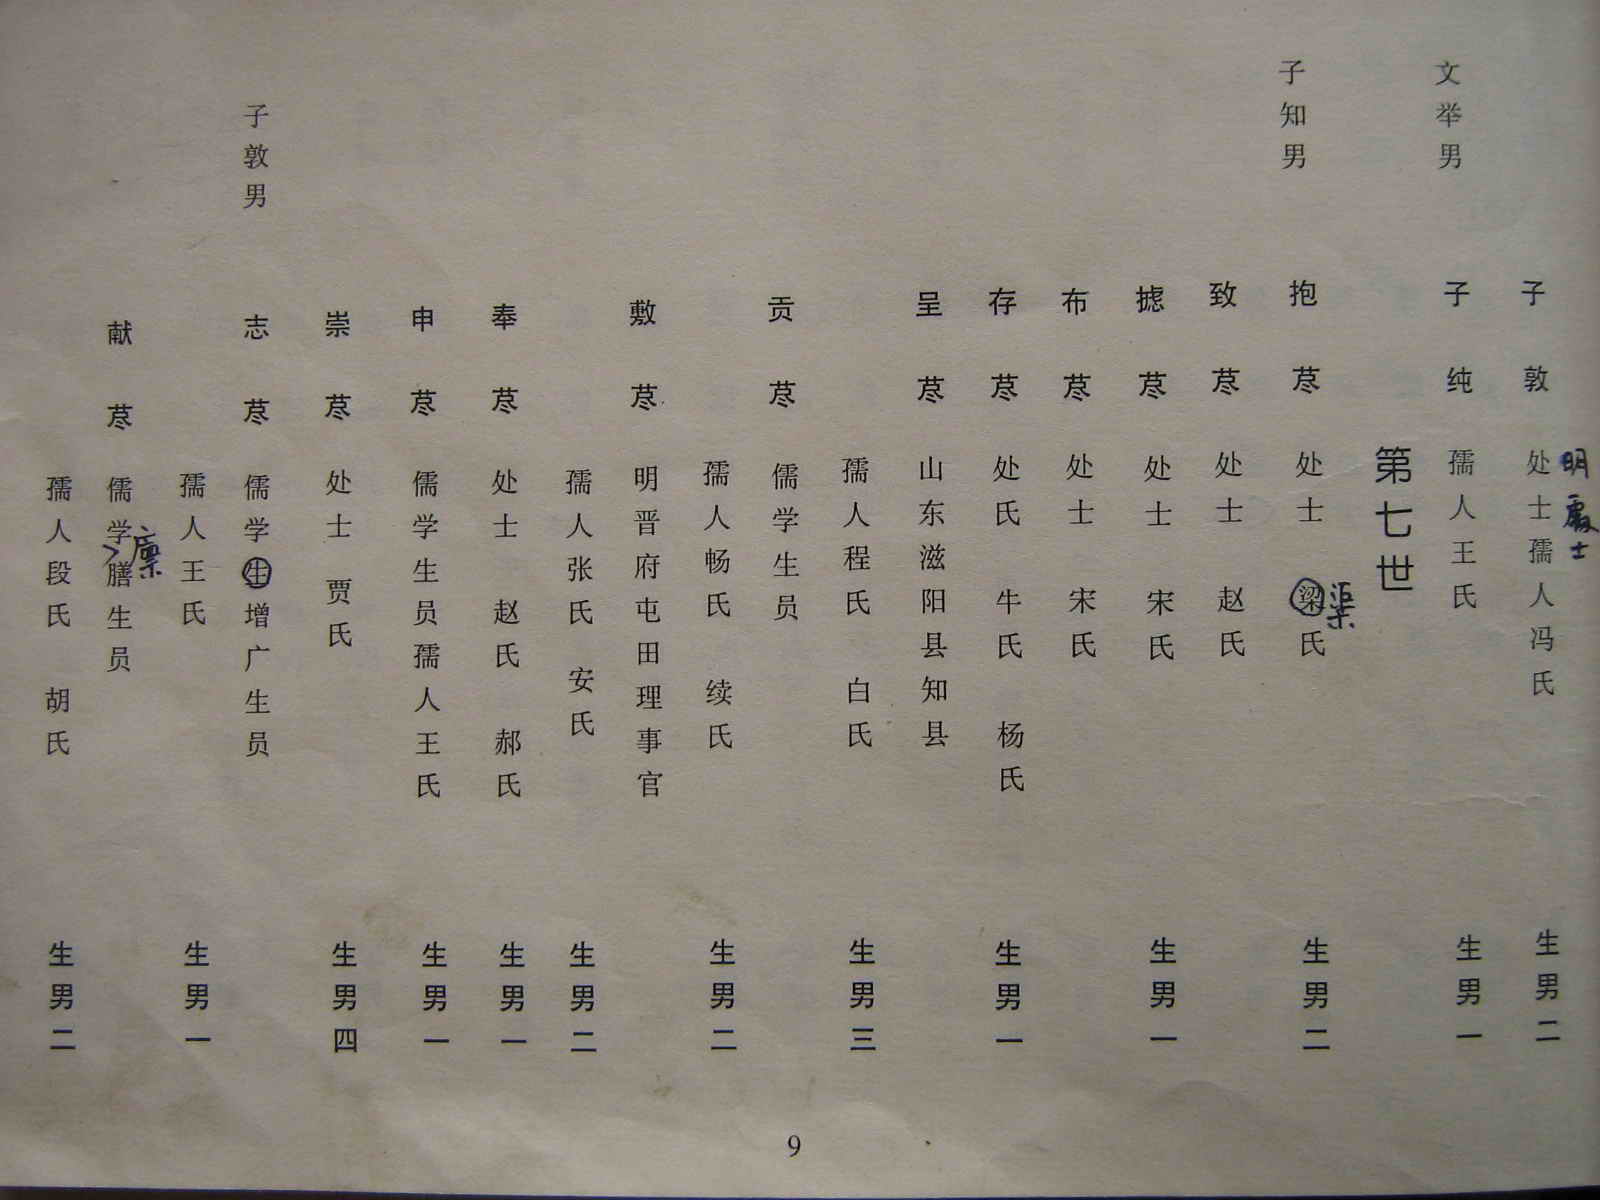 明處士
子敦 处士孺人冯氏 生男二
文举男 子纯 孺人王氏 生男一
第七世
渠
子知男 抱荩 处士 梁氏 生男二
致荩 处士 赵氏
摅荩 处士 宋氏 生男一
布荩 处士 宋氏
存荩 处氏 牛氏 杨氏 生男一
呈荩 山东滋阳县知县
孺人程氏 白氏 生男三
贡荩 儒学生员
孺人畅氏 续氏 生男二
敷荩 明晋府屯田理事官
孺人张氏 安氏 生男二
奉荩 处士 赵氏 郝氏 生男一
申荩 儒学生员孺人王氏 生男一
崇荩 处士 贾氏 生男四
子敦男 志荩 儒学生增广生员
孺人王氏 生男一
廪
献荩 儒学膳生员
孺人段氏 胡氏 生男二
9